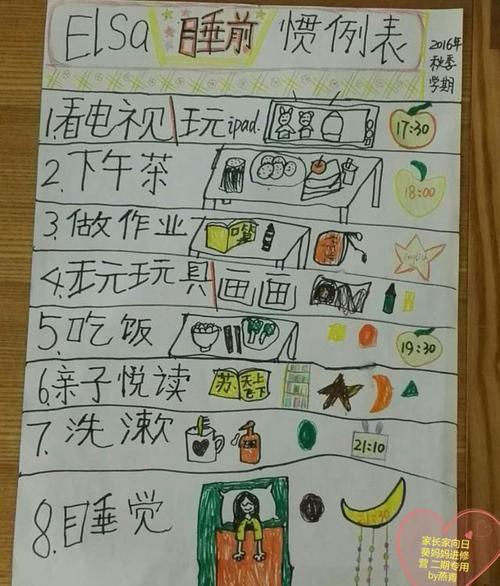 ELSa 睡前 惯例表
2016年
秋季
学期
1.看电视|玩ipad.
17:30
2.下午茶
18:00
3.做作业
口算
4.玩玩具|画画
5.吃饭
19:30
6.亲子悦读
7.洗漱
21:10
8.睡觉
21:30
家长家向日
葵妈妈进修
营 二期专用
by燕青